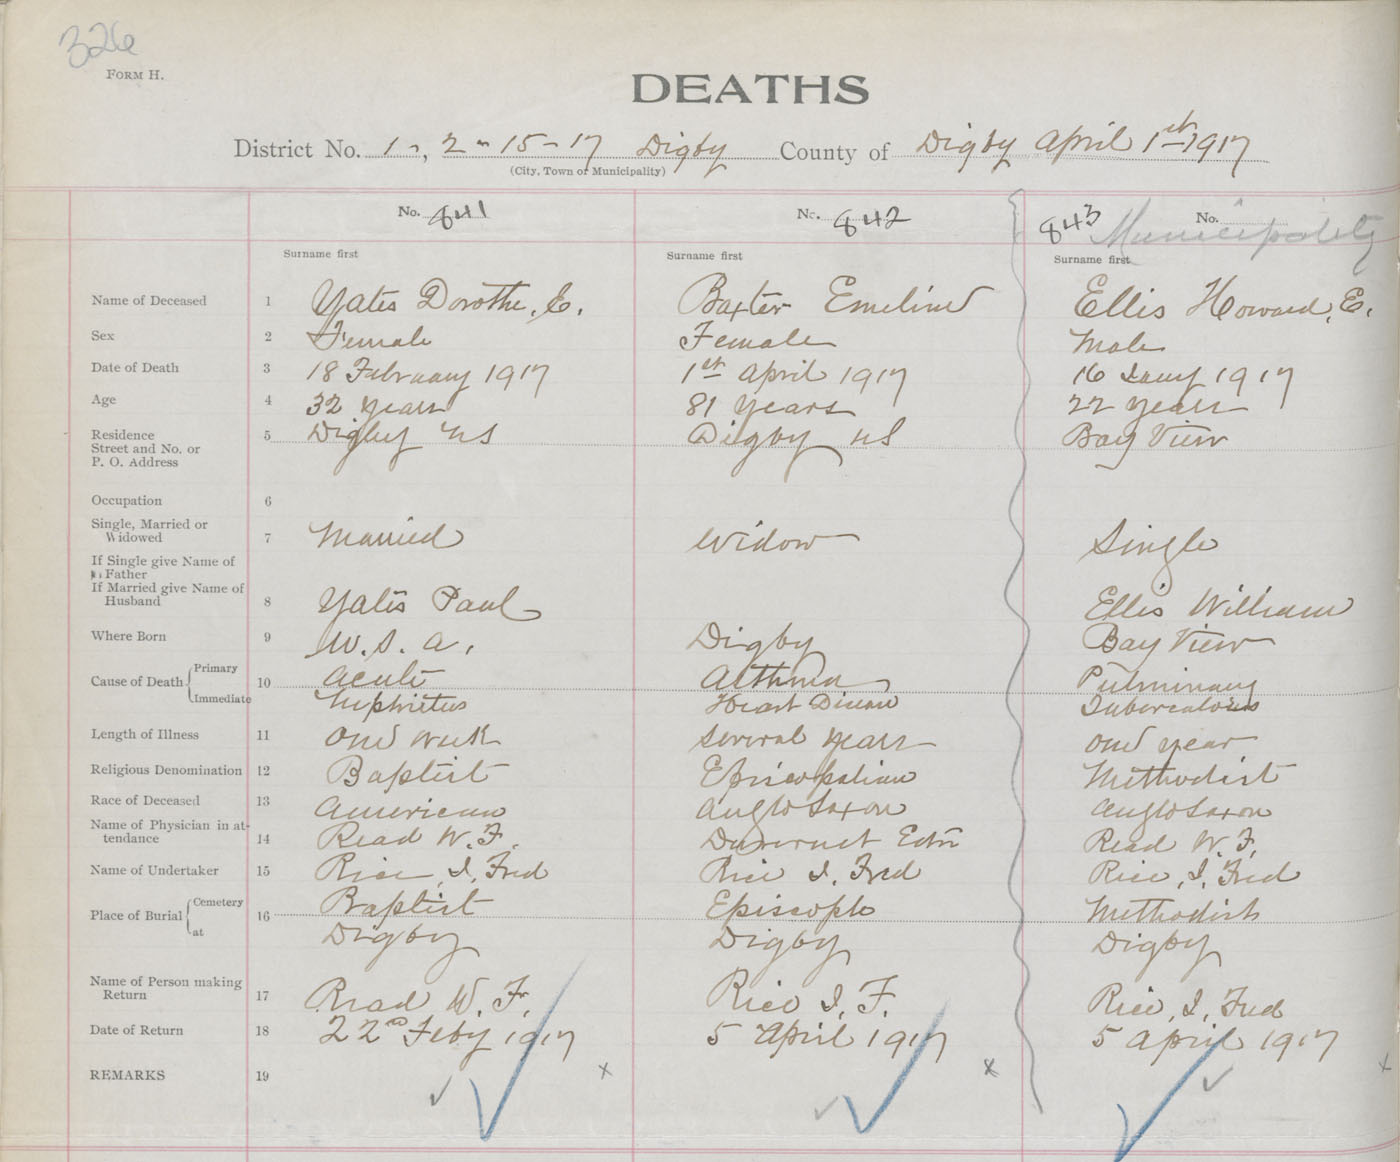 326
FORM H.
DEATHS
District No. 1-, 2-15-17 Digby County of Digby April 1st 1917
(City, Town or Municipality)
No. 841 No. 842 843 No. Municipality
Surname first Surname first Surname first
Name of Deceased 1 Yates Dorothe. E. Baxter Emeline Ellis Howard. E.
Sex 2 Female Female Male
Date of Death 3 18 February 1917 1st April 1917 16 Jany 1917
Age 4 32 years 81 years 22 years
Residence 5 Digby NS Digby NS Bay View
Street and No. or
P. O. Address
Occupation 6
Single, Married or
Widowed 7 Married Widow Single
If Single give Name of
Father
If Married give Name of
Husband 8 Yates Paul Ellis William
Where Born 9 U.S.A. Digby Bay View
Cause of Death Primary 10 Acute Asthma Pulminary
Immediate Nephrietus Heart Disease Tuberculosis
Length of Illness 11 One week Several years One year
Religious Denomination 12 Baptist Episcopalian Methodist
Race of Deceased 13 American Anglo Saxon Anglo Saxon
Name of Physician in at-
tendance 14 Read W. F. Edn Read W. F.
Name of Undertaker 15 Rice, I. Fred Rice I. Fred Rice, I. Fred
Place of Burial Cemetery 16 Baptist Episcople Methodist
at Digby Digby Digby
Name of Person making
Return 17 Read W. F. Rice I. F. Rice, I. Fred
Date of Return 18 22nd Feby 1917 5 April 1917 5 April 1917
REMARKS 19 x x x